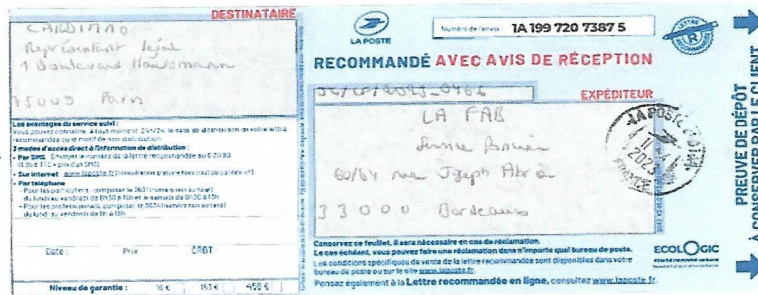 DESTINATAIRE
CARDIMMO
Représentant légal
1 Boulevard Haussmann
75009 Paris
Les avantages du service suivi :
Vous pouvez connaître à tout moment, 24h/24, la date de distribution de votre lettre
recommandée ou le motif de non-distribution.
3 modes d'accès direct à l'information de distribution :
• Par SMS : Envoyer le numéro de la lettre recommandée au
• Sur internet : www.laposte.fr
• Par téléphone
Pour les particuliers, composer le 3631
du lundi au vendredi de 8h30 à 19h et le samedi de 8h30 à 13h
Pour les professionnels, composer le 3634
du lundi au vendredi de 8h à 18h
Date : Prix CRBT :
Niveau de garantie : 16 € 153 € 458 €
LA POSTE
Numéro de l'envoi : 1A 199 720 7387 5
LETTRE
R
RECOMMANDÉ AVEC AVIS DE RÉCEPTION
EXPÉDITEUR
LA FAB
60/64 rue Joseph Abria
33000 Bordeaux
LA POSTE
2023
FRANCE
Conservez ce feuillet, il sera nécessaire en cas de réclamation.
Le cas échéant, vous pouvez faire une réclamation dans n'importe quel bureau de poste.
Les conditions spécifiques de vente de la lettre recommandée sont disponibles dans votre
bureau de poste ou sur le site www.laposte.fr.
Pensez également à la Lettre recommandée en ligne, consultez www.laposte.fr.
ECOLOGIC
PREUVE DE DÉPÔT
À CONSERVER PAR LE CLIENT